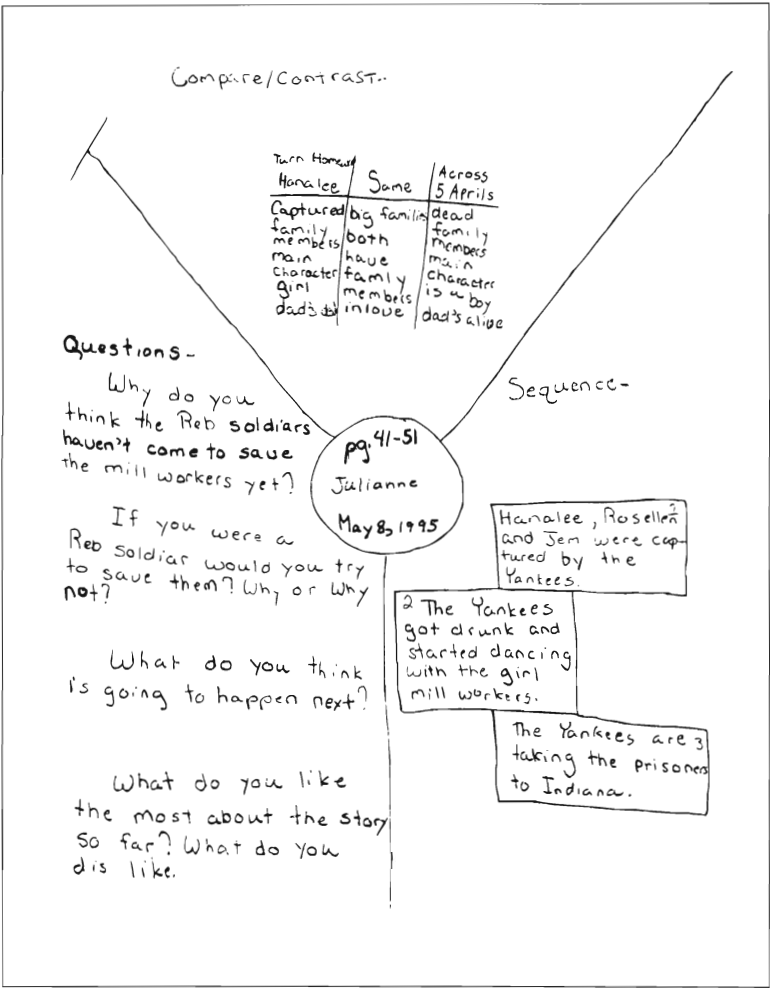 Compare/Contrast..
Turn Homeward
Hanalee
Same
Across
5 Aprils
Captured
family
members
main
character
girl
dad's
big familis
both
have
famly
members
in love
dead
family
members
main
character
is a boy
dad's alive
Questions-
Why do you
think the Reb soldiars
haven't come to save
the mill workers yet?
If you were a
Reb soldiar would you try
to save them? Why or Why
not?
What do you think
is going to happen next?
What do you like
the most about the story
so far? What do you
dis like.
pg. 41-51
Julianne
May 8, 1995
Sequence-
1
Hanalee, Rosellen
and Jem were cap-
tured by the
Yankees.
2 The Yankees
got drunk and
started dancing
with the girl
mill workers.
The Yankees are 3
taking the prisoners
to Indiana.